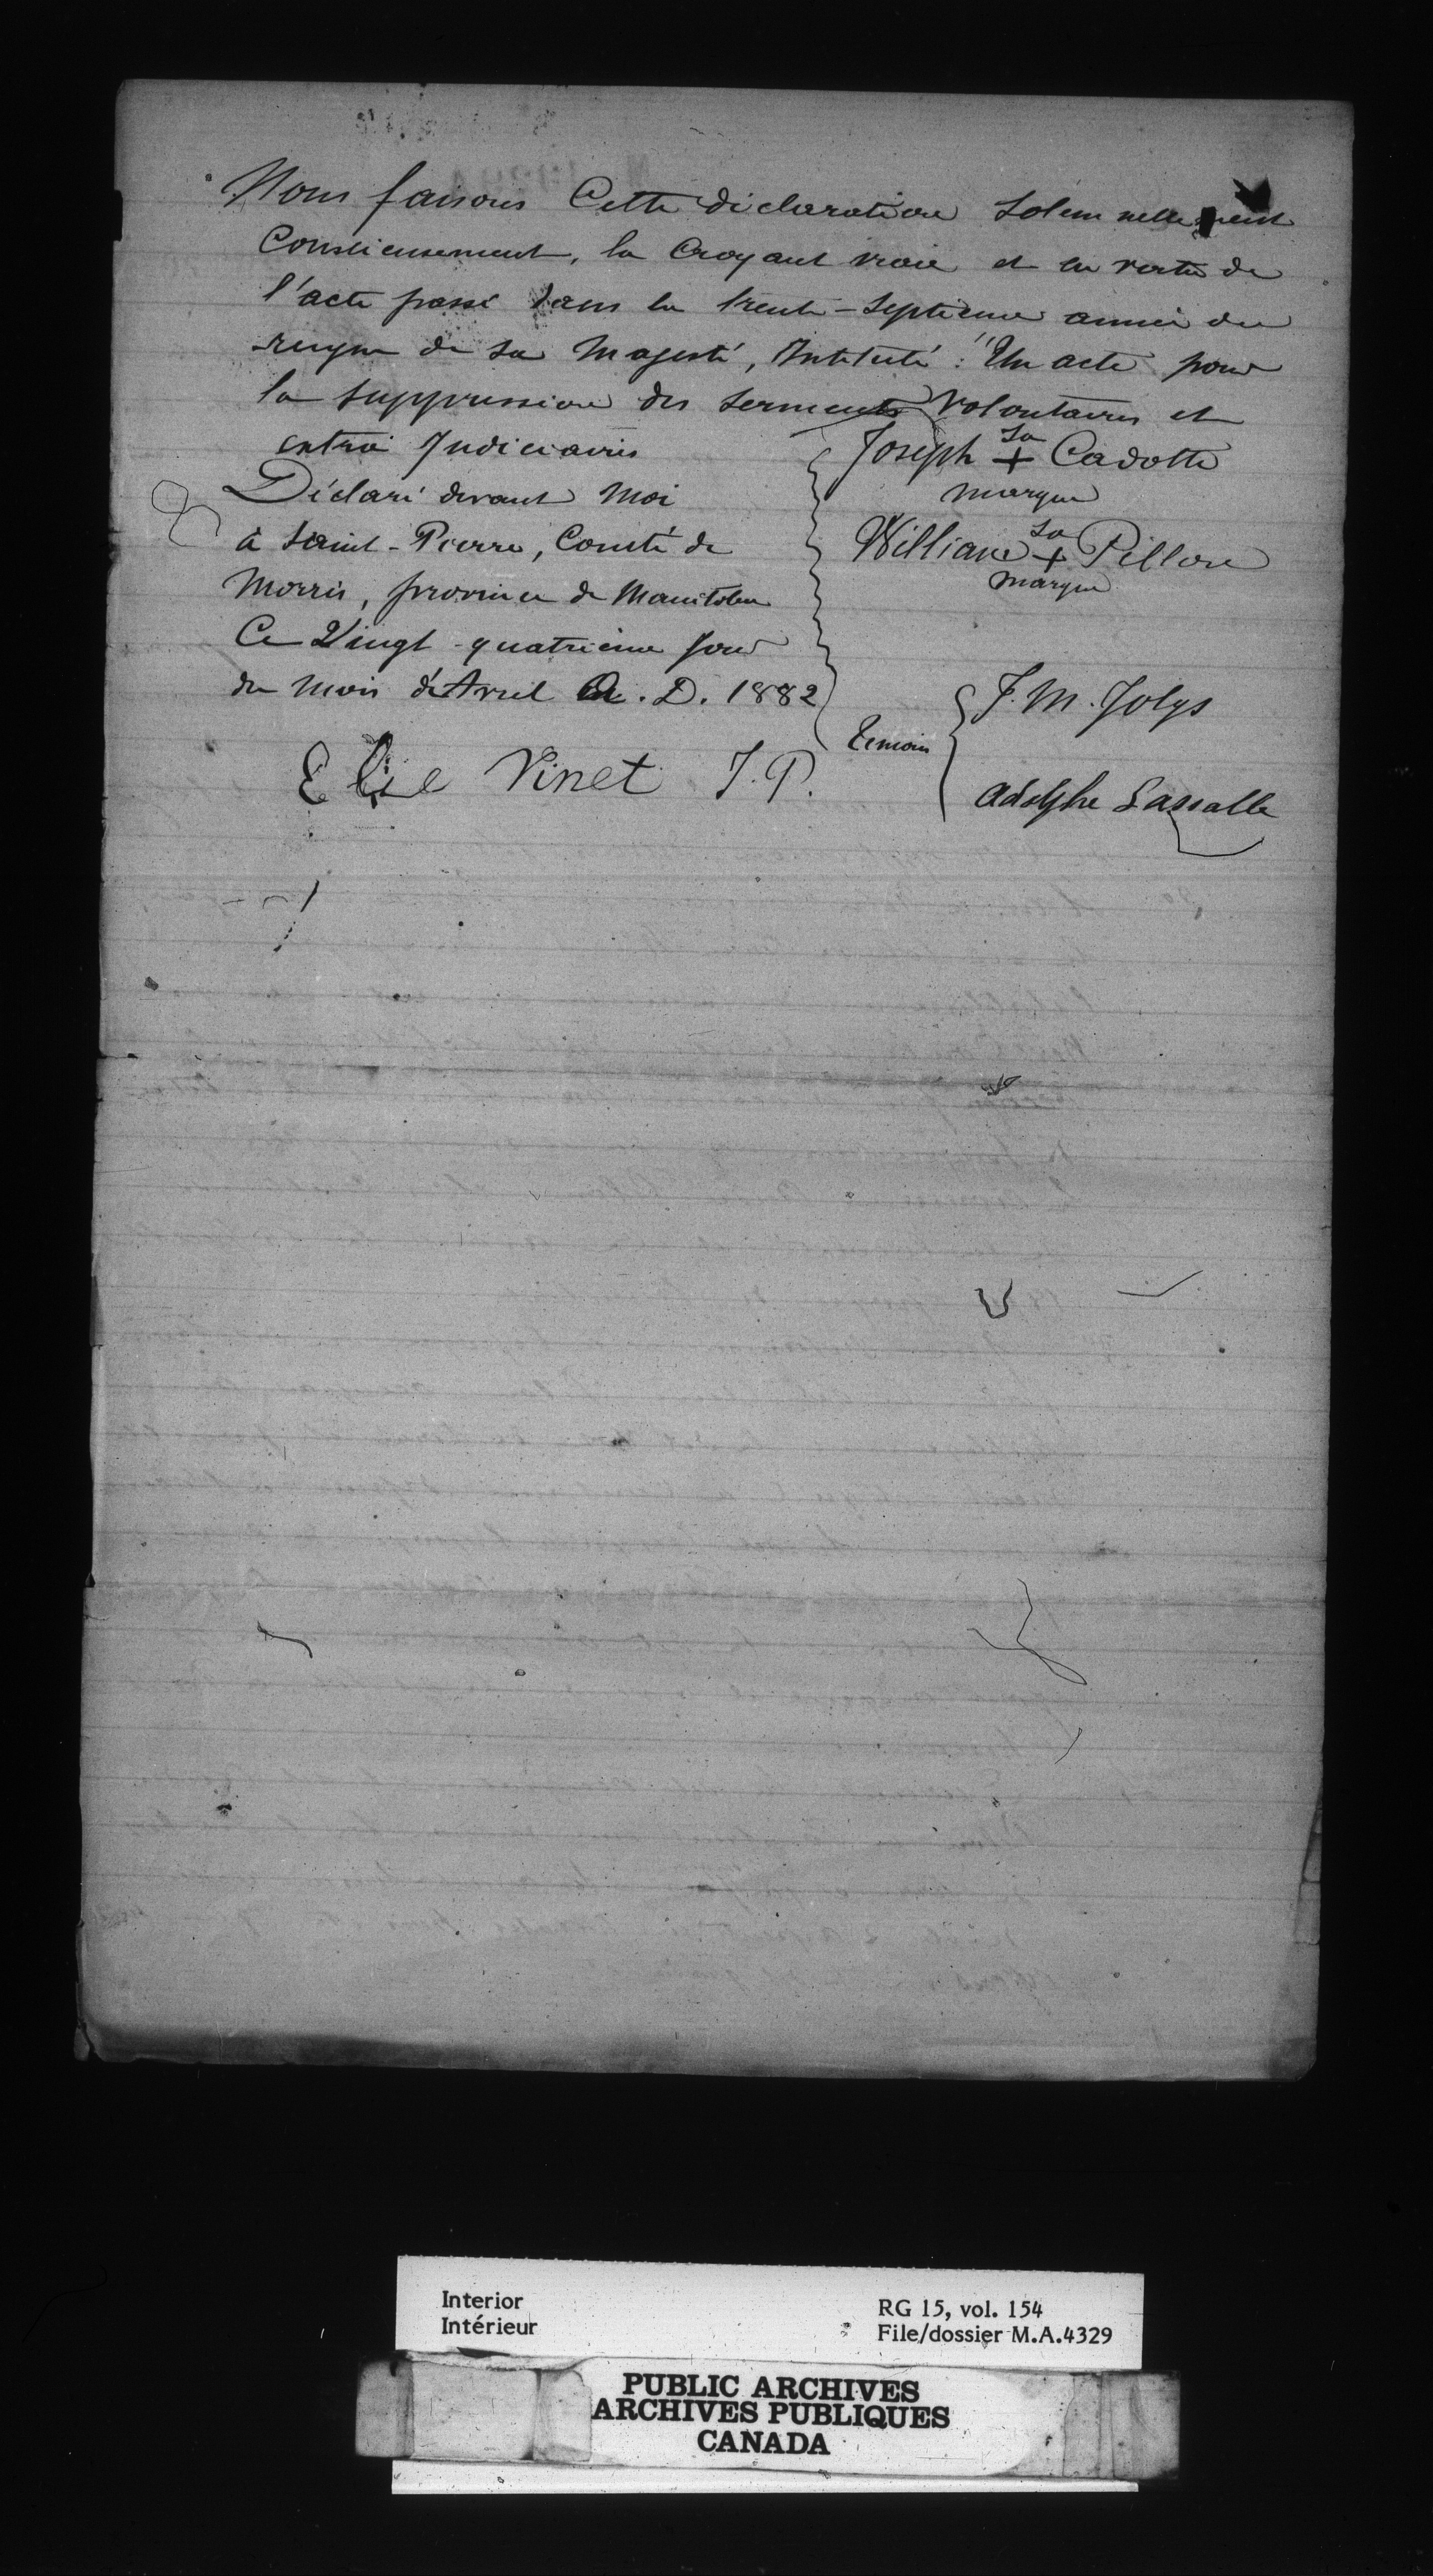 Nous faisons Cette déclaration Solemnellement
Conscieusement, la Croyant vraie et en vertu de
l'acte passé dans la trente-septième année du
reigne de Sa Majesté, Intitulé : "Un acte pour
la suppression des serments volontaires et
extra Judiciaires
Déclaré devant Moi
à Saint-Pierre, Comté de
Morris, province de Manitoba
Ce Vingt-quatrième jour
du Mois d'Avril A. D. 1882
Elie Vinet J.P.
Joseph Sa + Cadotte
marque
William Sa + Pillon
marque
Temoin
J. M. Jolys
Adolphe Lassalle
Interior
Intérieur
RG 15, vol. 154
File/dossier M.A.4329
PUBLIC ARCHIVES
ARCHIVES PUBLIQUES
CANADA